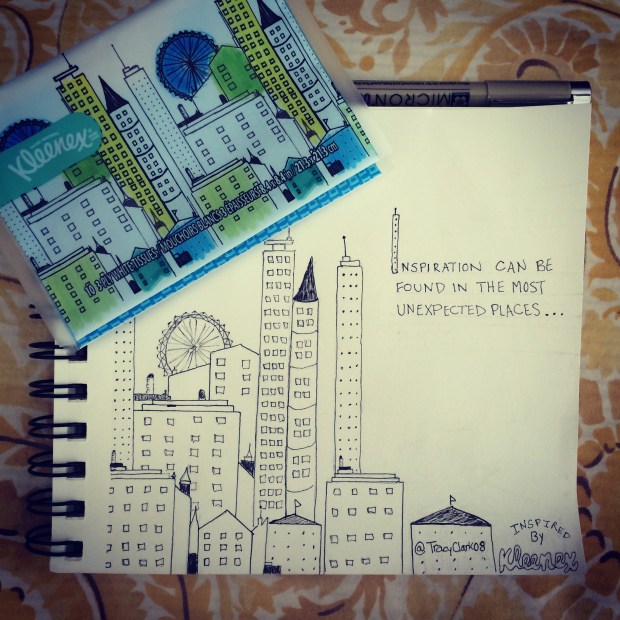 Kleenex
10 3-PLY WHITE TISSUES • MOUCHOIRS BLANCS 3 ÉPAISSEURS 8.4 in x 8.4 in / 21.3 x 21.3 cm
MICRON
INSPIRATION CAN BE
FOUND IN THE MOST
UNEXPECTED PLACES...
@TracyClark08
INSPIRED
BY
Kleenex